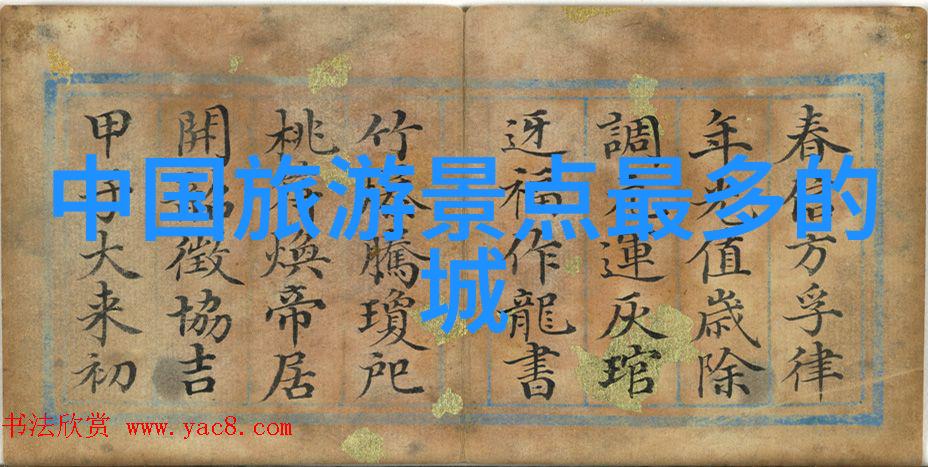 中国旅游景点最多的
城
春信方孚律
年光值歲除
調運灰琯
迓福作龍書
竹騰瓊
桃符煥帝居
開韶徵協吉
甲子大来初
书法欣赏 www.yac8.com